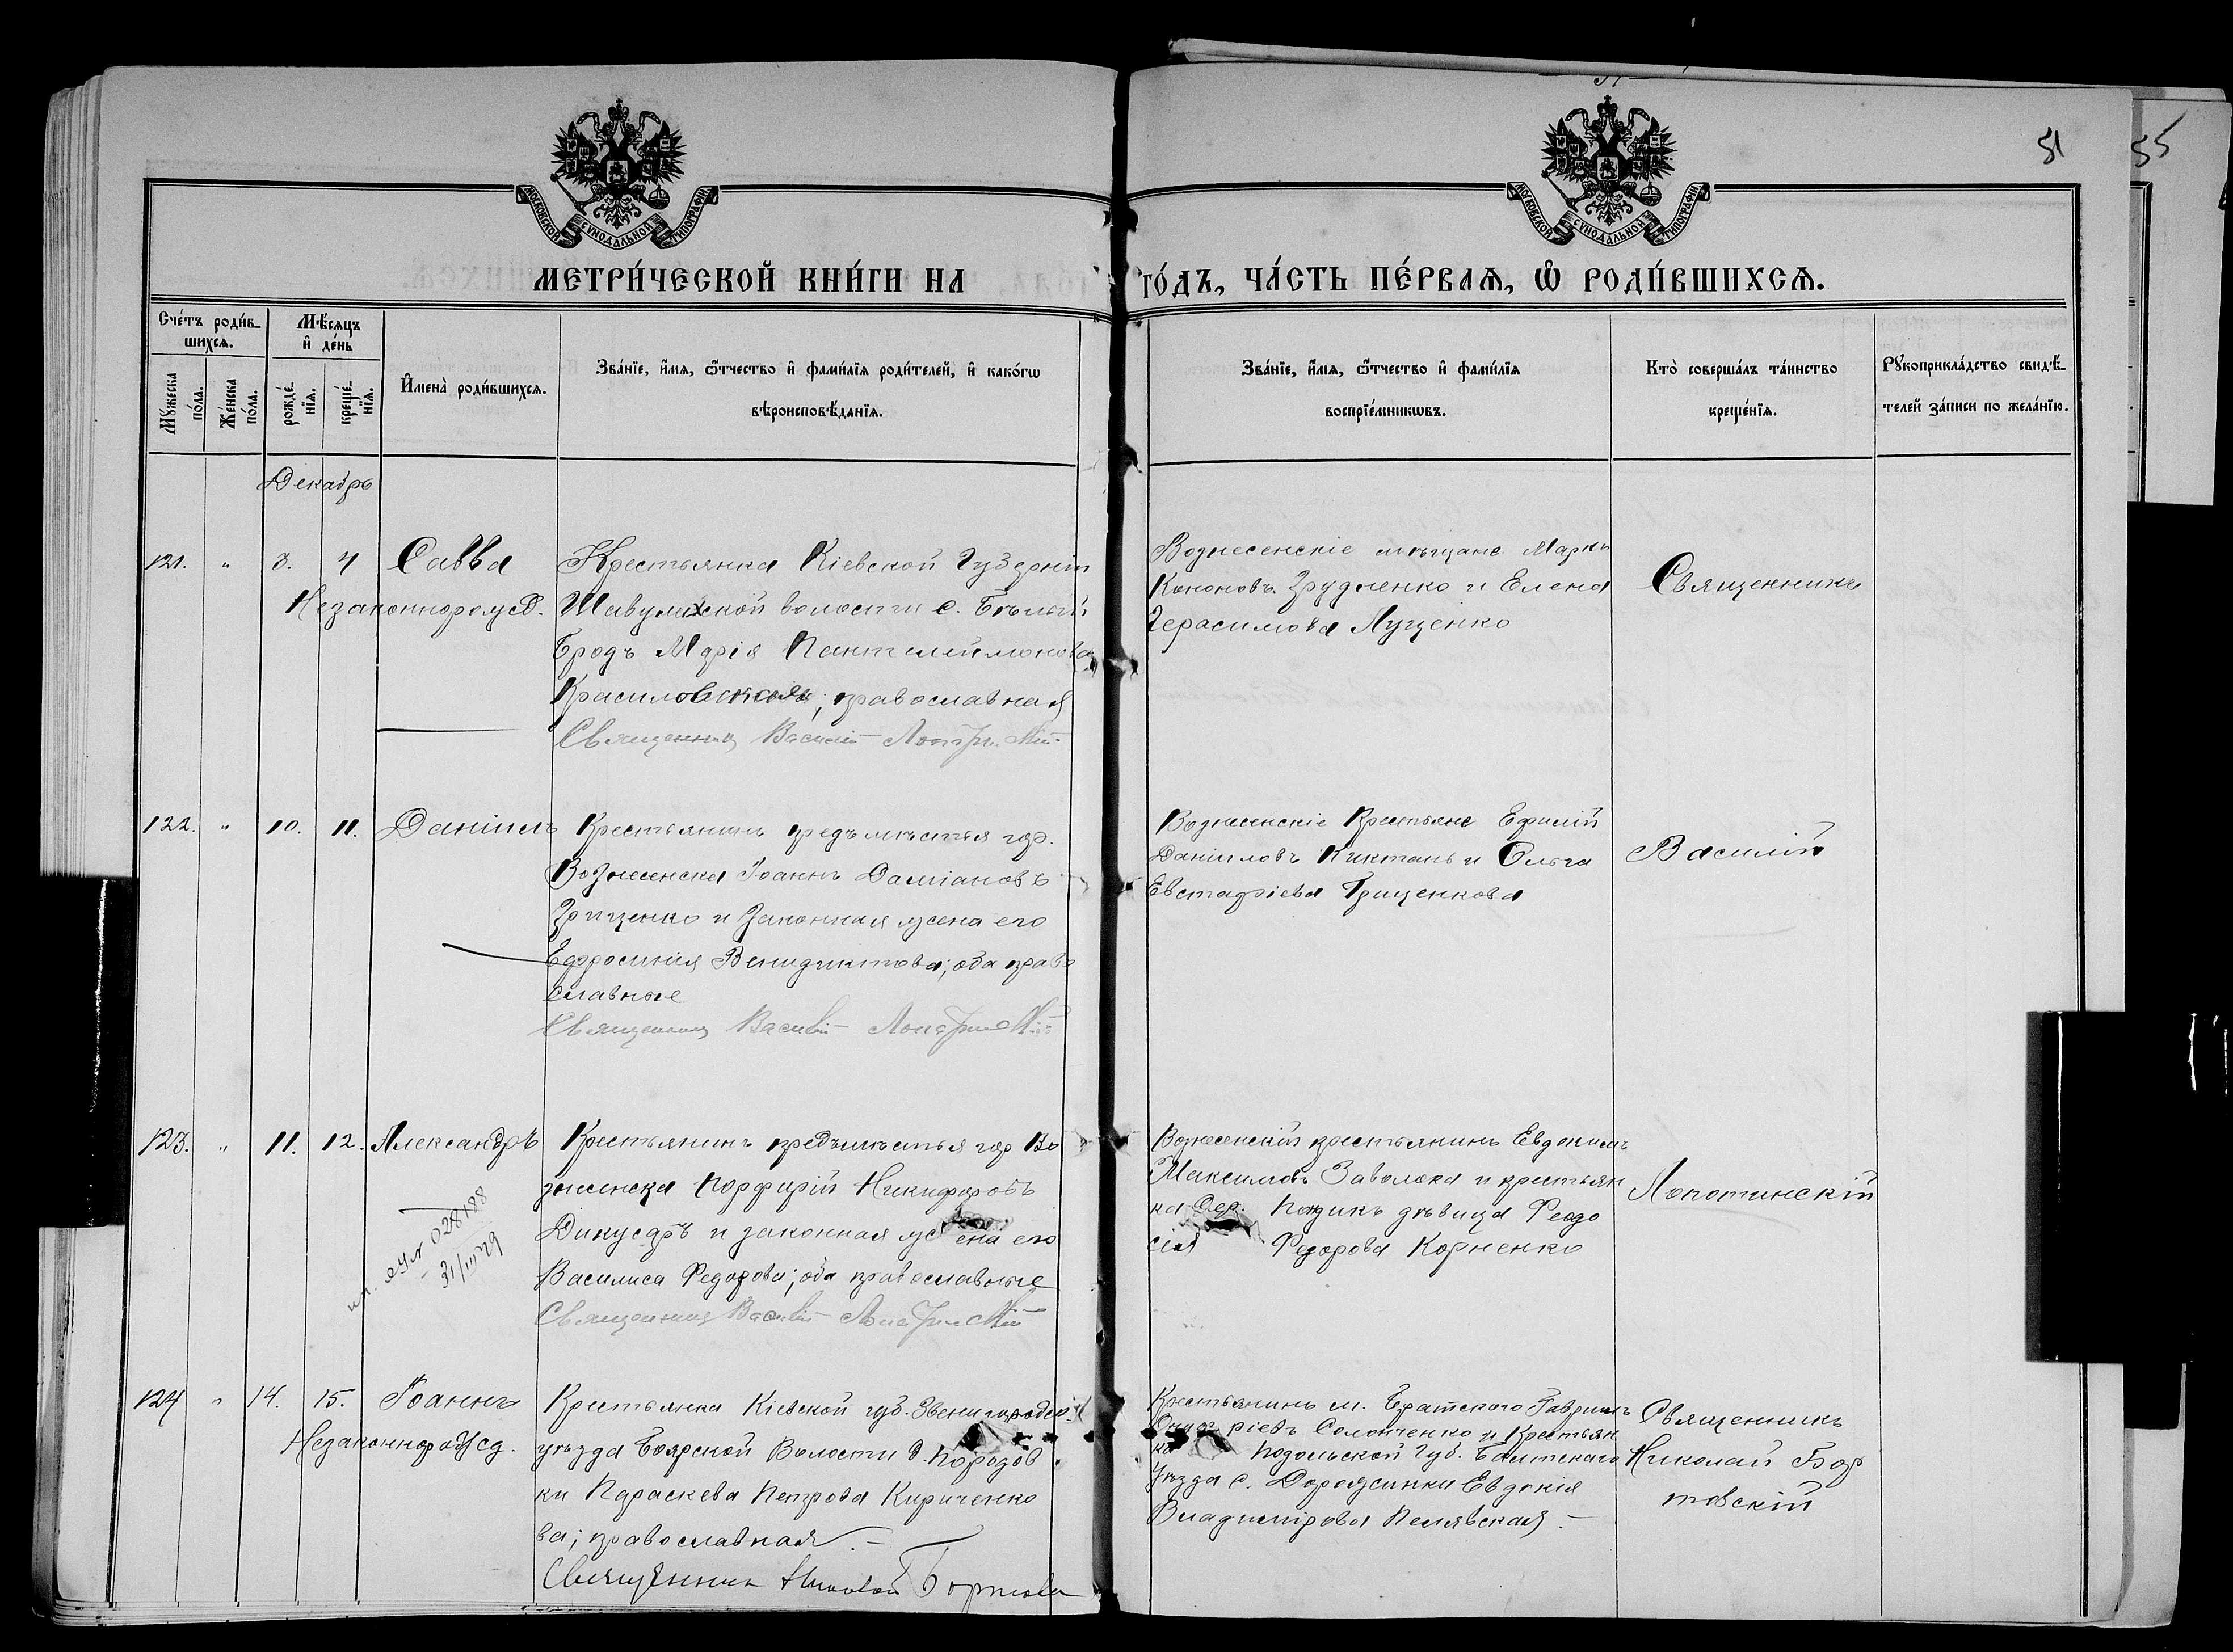 51
55
МОСКОВСКОЙ СѴНОДАЛЬНОЙ ТИПОГРАФІИ
МОСКОВСКОЙ СѴНОДАЛЬНОЙ ТИПОГРАФІИ
МЕТРИ́ЧЕСКОЙ КНИ́ГИ НА
ГО́ДЪ, ЧА́СТЬ ПЕ́РВАѦ, Ѽ РОДИ́ВШИХСѦ.
Сче́тъ роди́в-
шихсѧ.
Мꙋжеска
по́ла.
Же́нска
по́ла.
Мѣ́сѧцъ
и҆ де́нь
рожде́-
нїѧ.
креще́-
нїѧ.
И҆мена̀ роди́вшихсѧ.
Зва́нїе, и҆́мѧ, ѻ҆́тчество и҆ фами́лїѧ роди́телей, и҆ како́гѡ
вѣроисповѣ́данїѧ.
Зва́нїе, и҆́мѧ, ѻ҆́тчество и҆ фами́лїѧ
воспрїе́мникѡвъ.
Кто̀ соверша́лъ та́инство
креще́нїѧ.
Рꙋкоприкла́дство свидѣ́-
телей за́писи по жела́нїю.
Декабрь
121. " 3. 4 Савва
Незаконнорожд.
Крестьянка Кіевской Губерніи
Шавулихской волости с. Бѣлый
Бродъ Марія Пантелеймонова
Красиловская, православная
Священникъ Василій Лопатинскій
Вознесенскіе мѣщане Маркъ
Кононовъ Грудненко и Елена
Герасимова Луценко
Священникъ
122. " 10. 11. Даніилъ
Крестьянинъ предъмѣстья гор.
Вознесенска Іоаннъ Даміановъ
Грищенко и законная жена его
Ефросинія Венидиктова; оба право
славные
Священникъ Василій Лопатинскій
Вознесенскіе Крестьяне Ефимій
Даніиловъ Киктань и Ольга
Евстафіева Грищенкова
Василій
123. " 11. 12. Александръ
028188
Крестьянинъ предъмѣстья гор Во
знесенска Порфирій Никифоровъ
Дикусаръ и законная жена его
Василиса Федорова; оба православные
Священникъ Василій Лопатинскій
Вознесенскій крестьянинъ Евдокимъ
Максимовъ Заволока и крестьян
ка Дер. дѣвица Феодо
сія Федорова Корненко
Лопотинскій
124 " 14. 15. Іоаннъ
Незаконнорожд.
Крестьянка Кіевской губ. Звенигородск.
уѣзда Боярской Волости д.
ки Параскева Петрова Кириченко
ва; православная. -
Священникъ Николай Бортовскій
Крестьянинъ м. Братского Гавріилъ
Солонченко и Крестьян
ка Подольской Губ. Балтскаго
Уѣзда с. Дорожинки Евдокія
Владимірова
Священникъ
Николай Бор
товскій